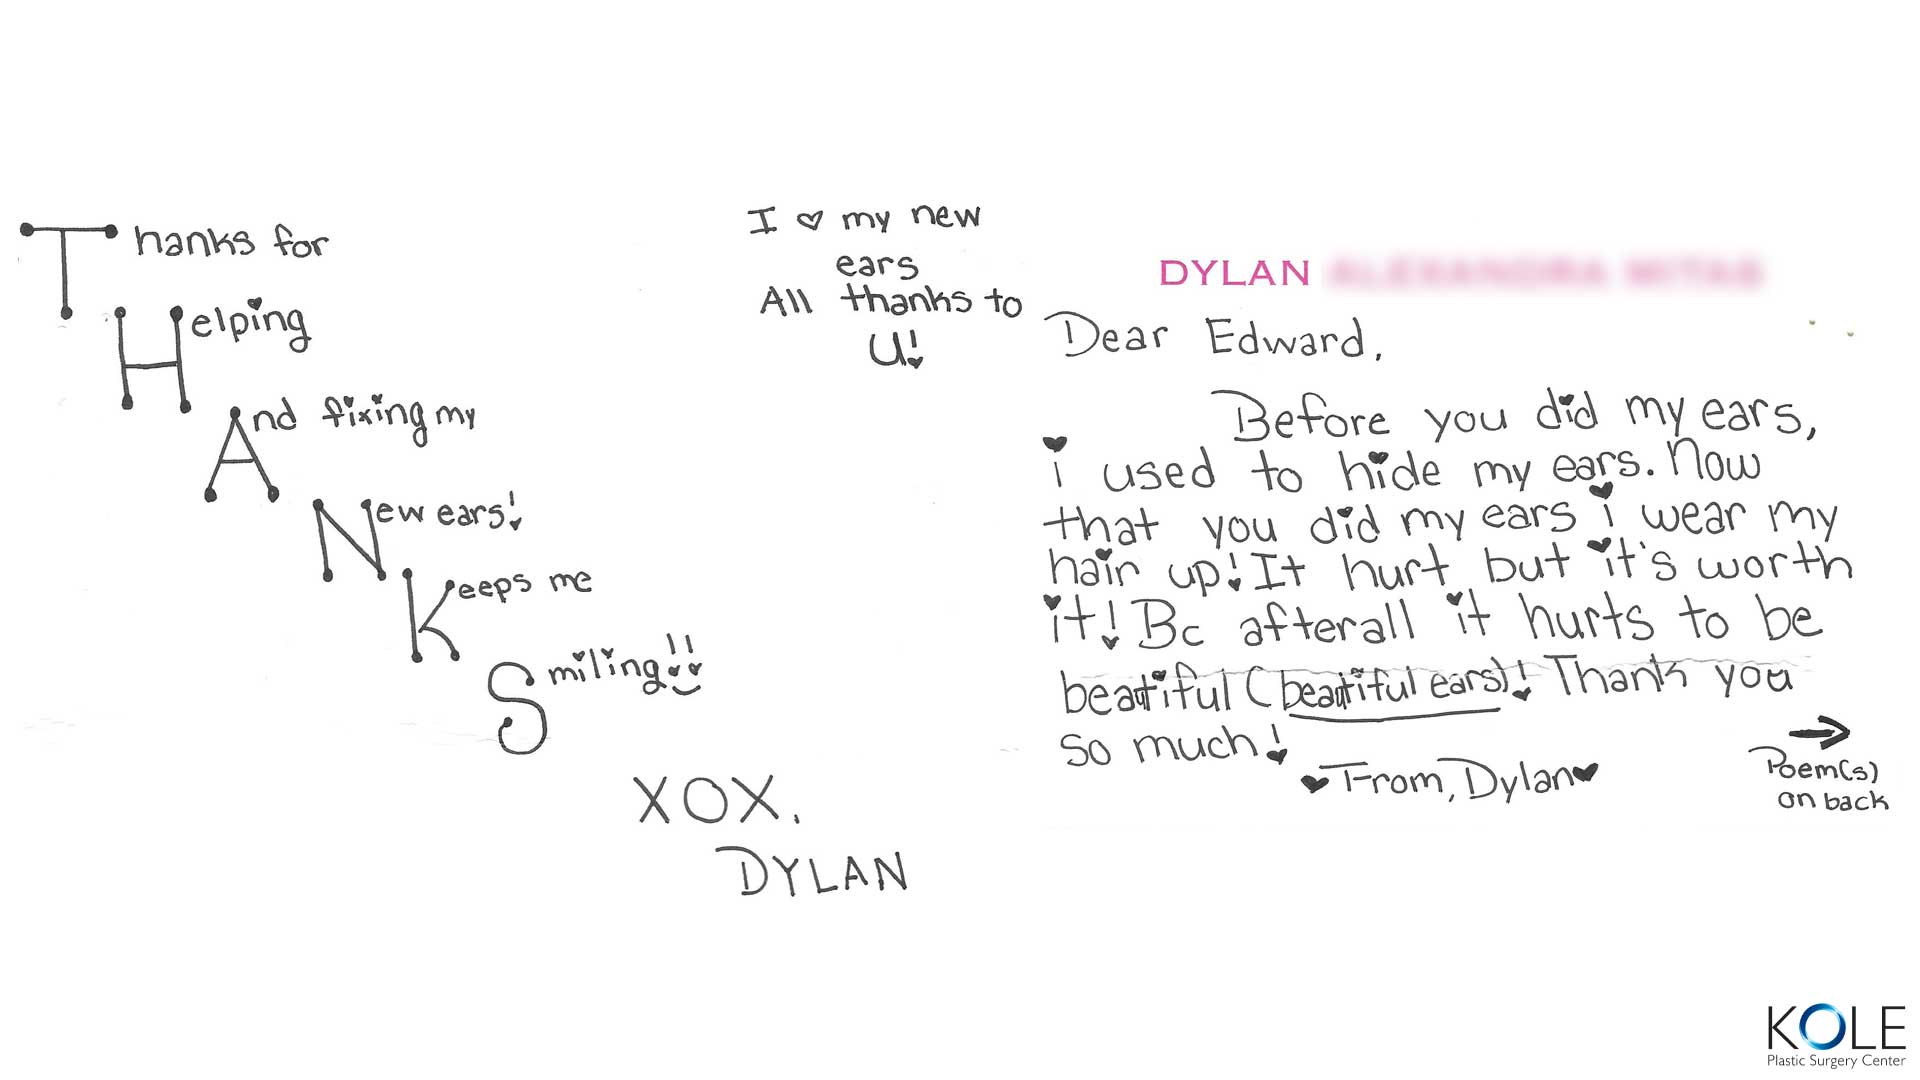 Thanks for
Helping
And fixing my
New ears!
Keeps me
Smiling!!
XOX,
DYLAN
I ♡ my new
ears
All thanks to
U!
DYLAN
Dear Edward,
Before you did my ears,
i used to hide my ears. Now
that you did my ears i wear my
hair up! It hurt but it's worth
it! Bc afterall it hurts to be
beautiful (beautiful ears)! Thank you
so much!
♥From, Dylan♥
→
Poem(s)
on back
KOLE
Plastic Surgery Center